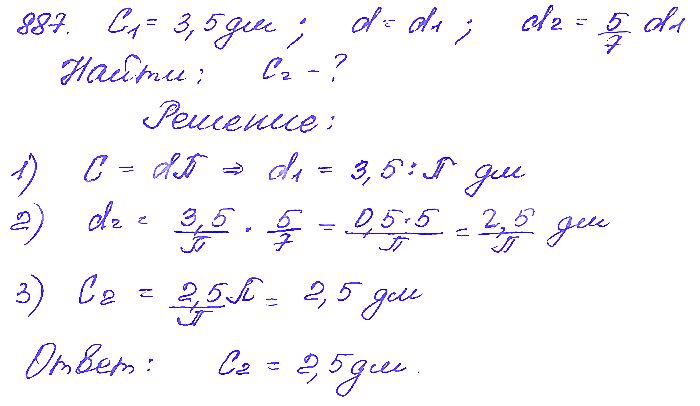 887. C₁ = 3,5 дм ; d = d₁ ; d₂ = 5/7 d₁
Найти: C₂ - ?
Решение:
1) C = dП ⇒ d₁ = 3,5 : П дм
2) d₂ = 3,5/П · 5/7 = 0,5·5/П = 2,5/П дм
3) C₂ = 2,5/П П = 2,5 дм
Ответ: C₂ = 2,5 дм.